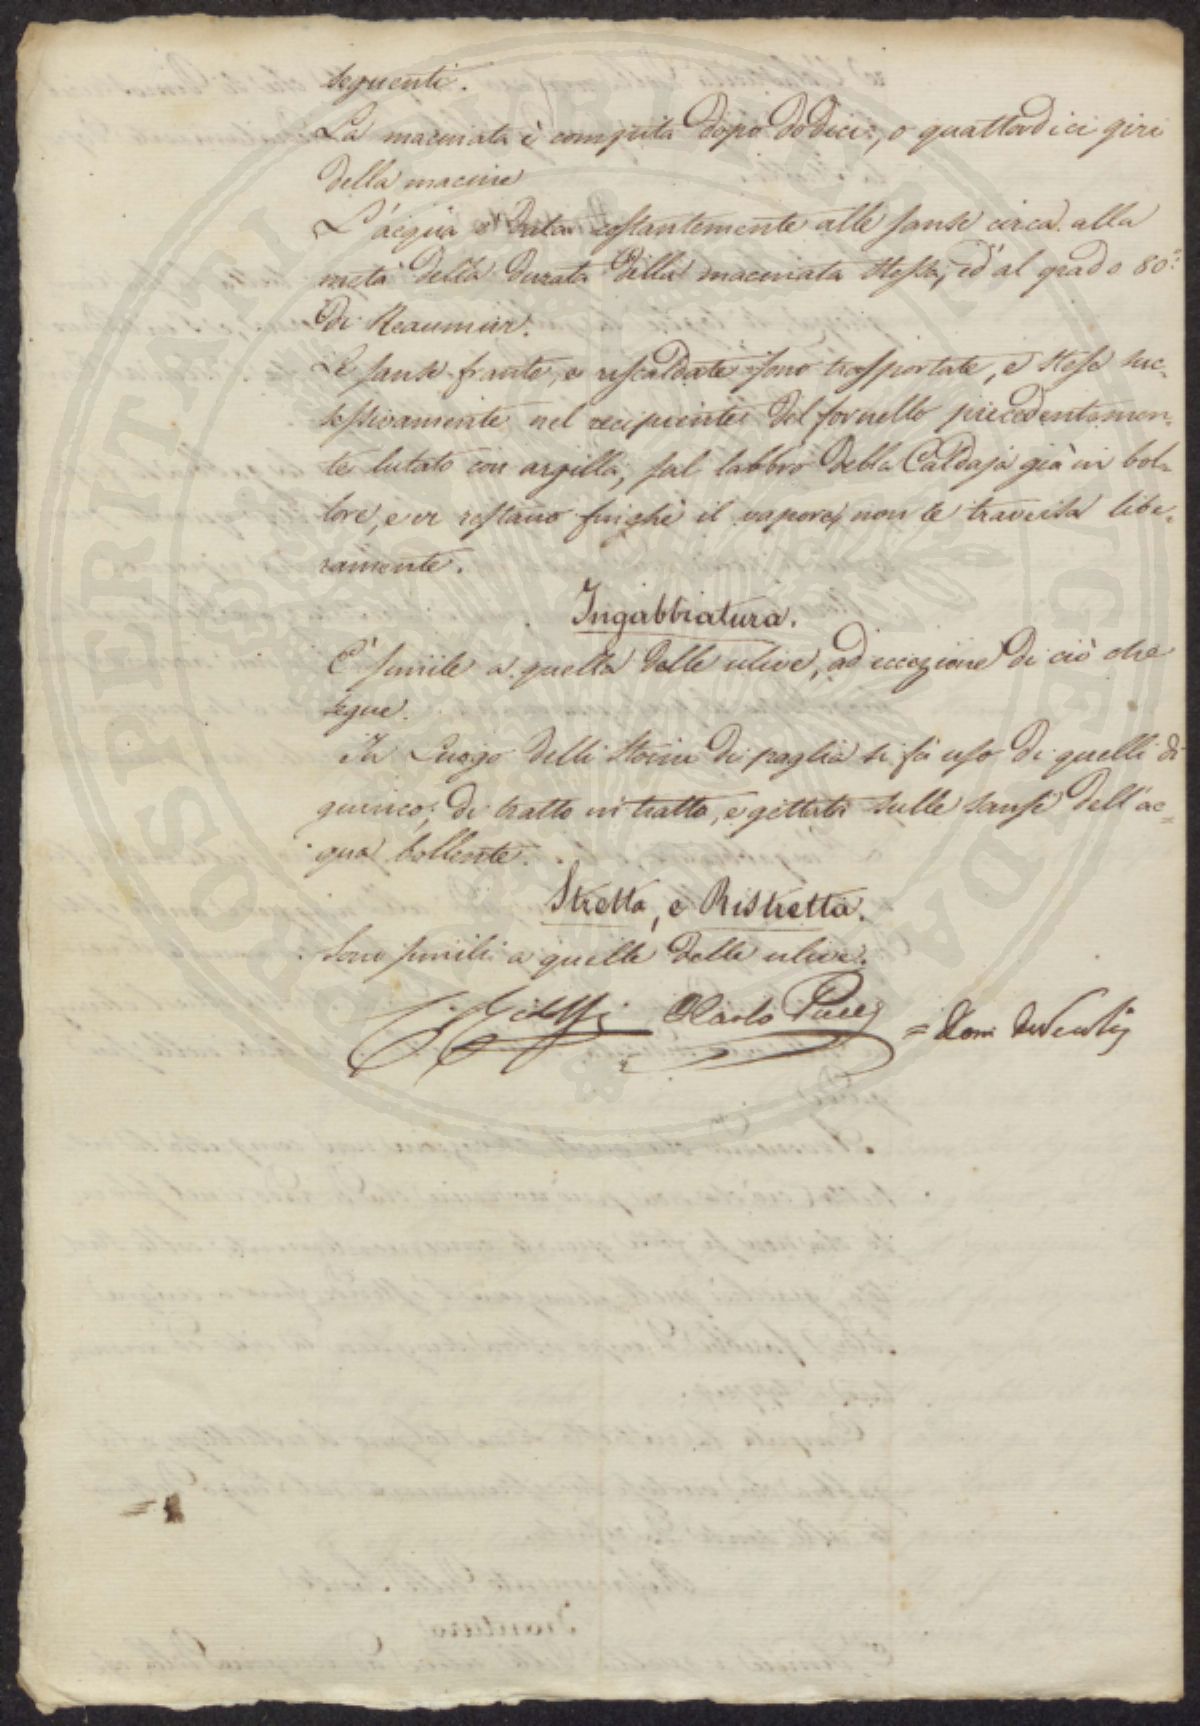 seguenti.
La macinata è compiuta dopo dodici, o quattordici giri
della macine
L'acqua è data costantemente alle sanse circa alla
metà della durata della macinata stessa, ed al grado 80:
di Reaumur.
Le sanse frante, e riscaldate sono trasportate, e stese suc=
cessivamente nel recipiente del fornello precedentemen=
te lutato con argilla, sul labbro della Caldaja già in bol=
lore, e vi restano finchè il vapore non le traversa libe=
ramente.
Ingabbiatura.
E' simile a quella delle ulive, ad eccezione di ciò che
segue.
In Luogo delli Stoini di paglia si fà uso di quelli di
giunco; di tratto in tratto, è gittata sulle sanse dell'ac=
qua bollente.
Stretta, e Ristretta.
Sono simili a quelle delle ulive.
Carlo Pucci =
PROSPERITATI PUBLICAE AUGENDAE